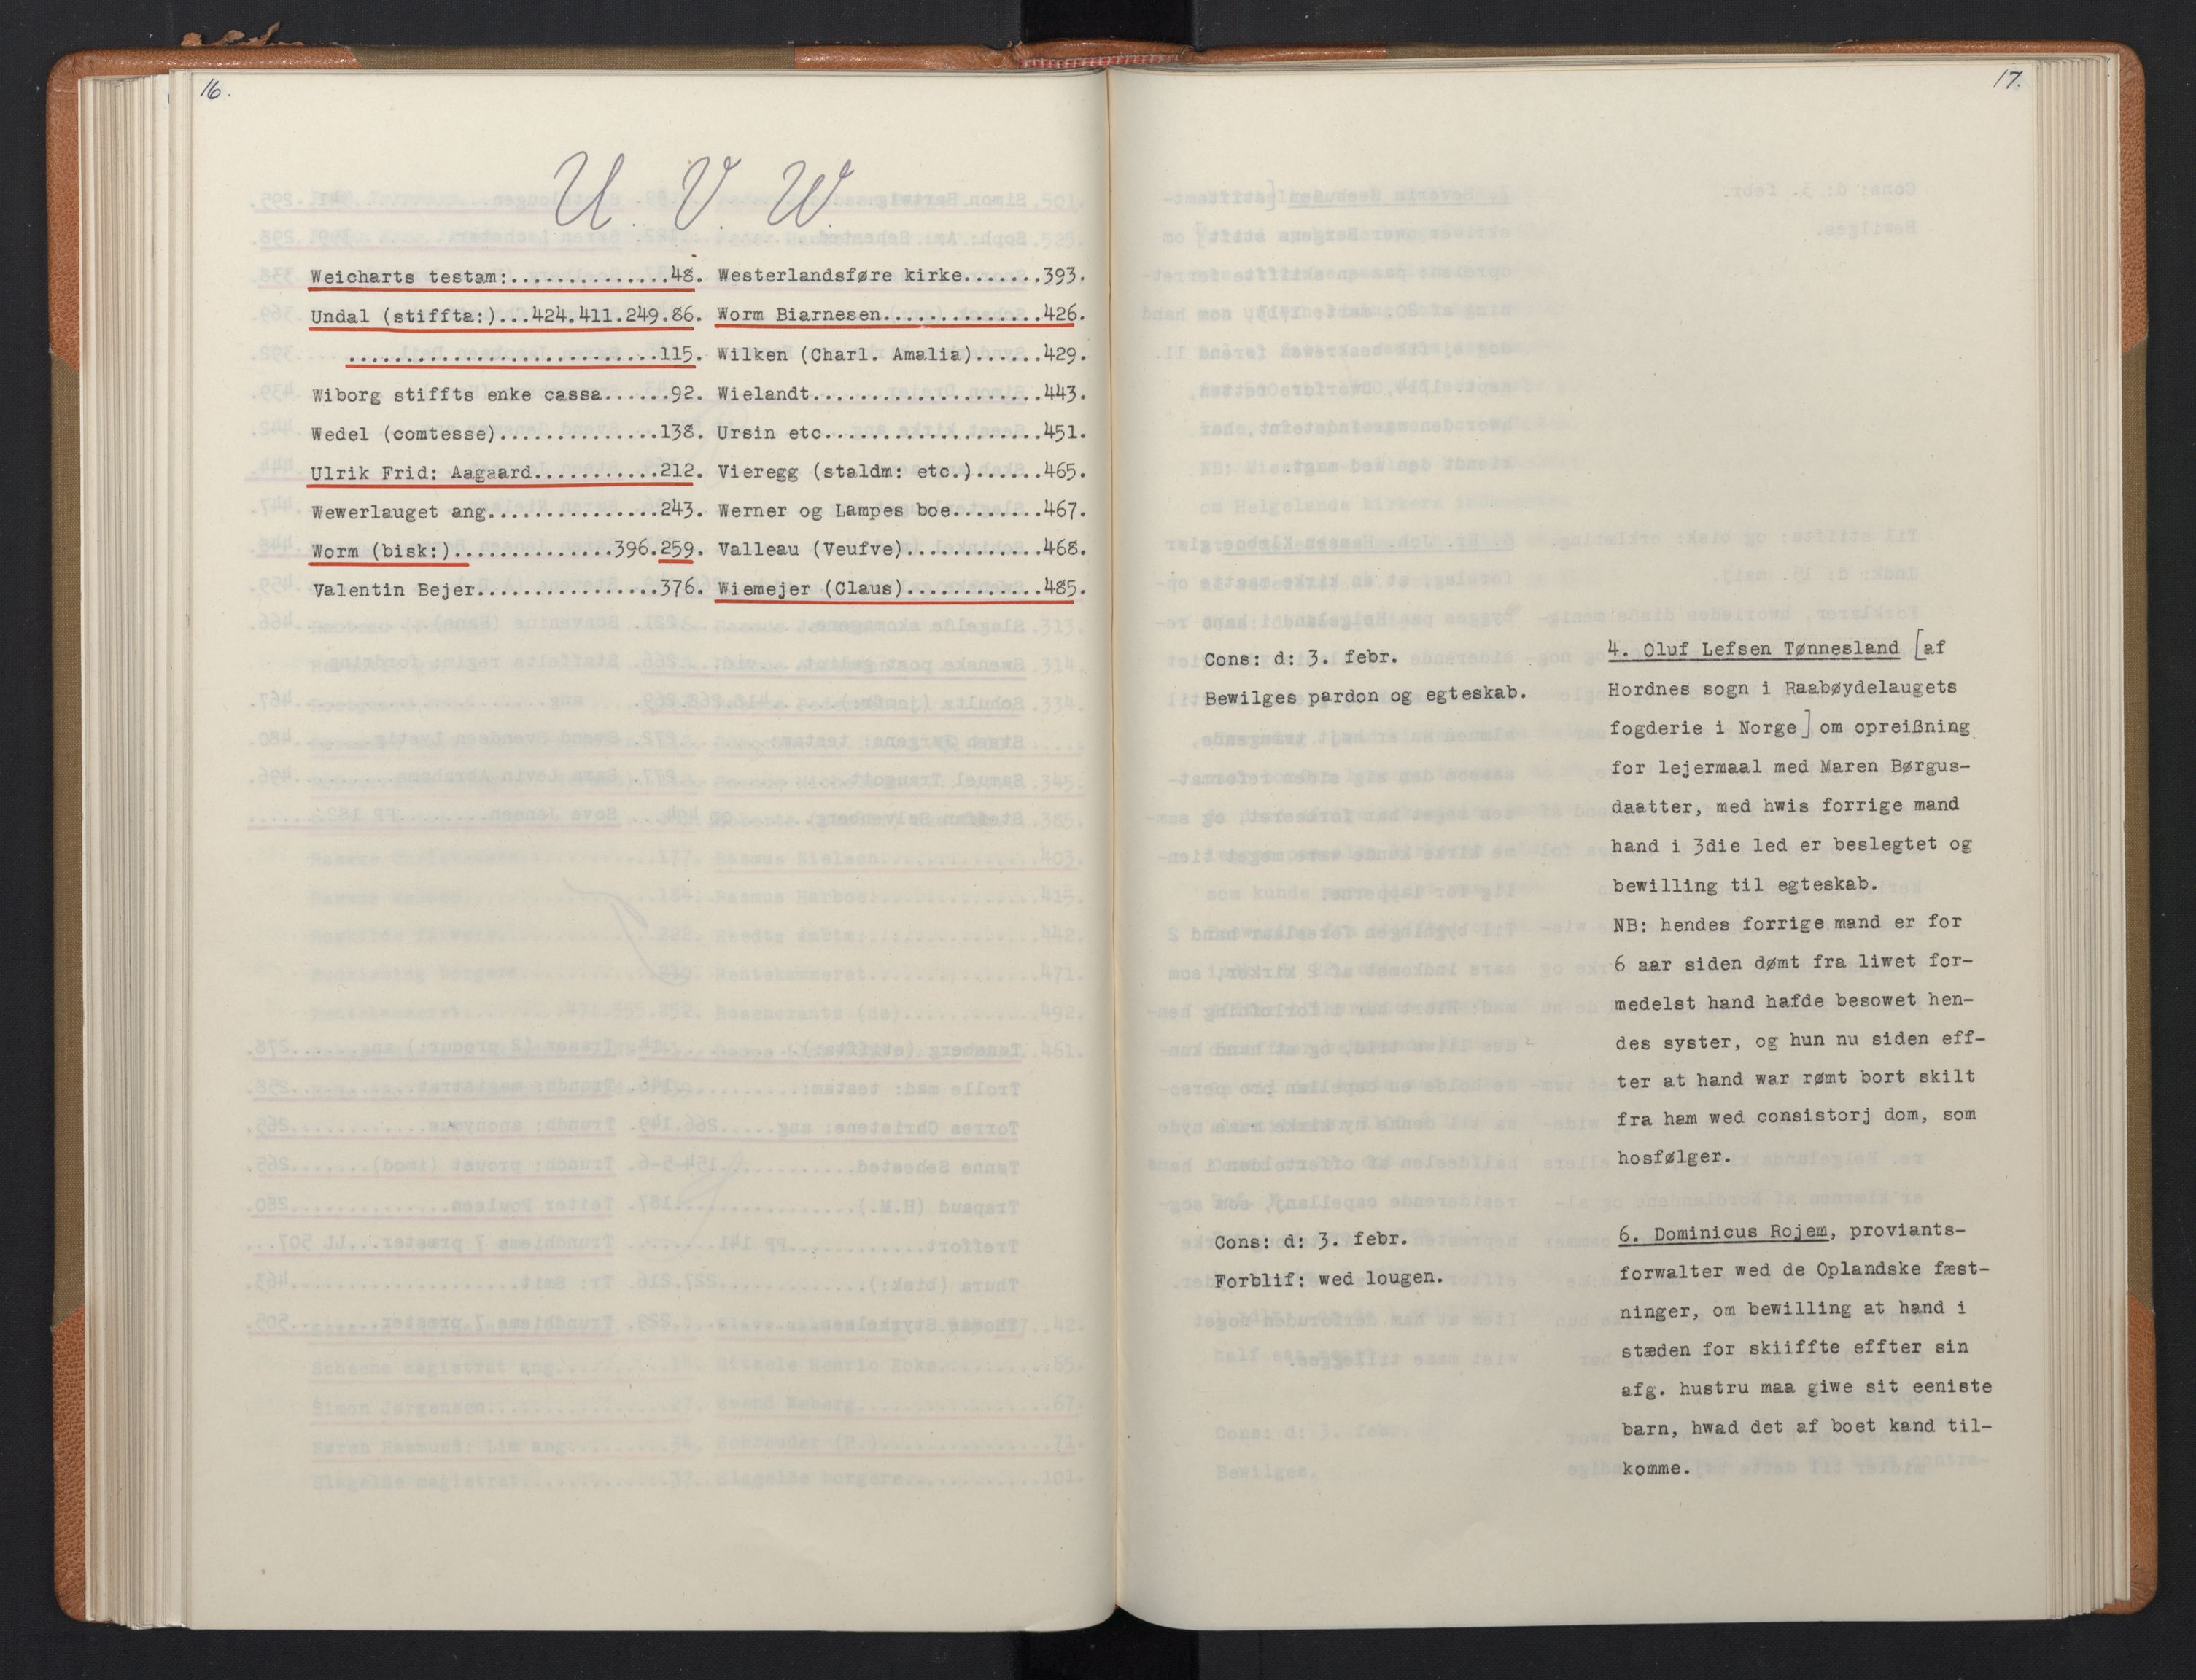 16.
U. V. W.
Weicharts testam:..............48.
Undal (stiffta:)...424.411.249.86.
...........................115.
Wiborg stiffts enke cassa......92.
Wedel (comtesse)..............138.
Ulrik Frid: Aagaard...........212.
Wewerlauget ang...............243.
Worm (bisk:)..............396.259.
Valentin Bejer................376.
Westerlandsføre kirke.......393.
Worm Biarnesen..............426.
Wilken (Charl. Amalia)......429.
Wielandt....................443.
Ursin etc...................451.
Vieregg (staldm: etc.)......465.
Werner og Lampes boe........467.
Valleau (Veufve)............468.
Wiemejer (Claus)............485.
17.
Cons: d: 3. febr.
Bewilges pardon og egteskab.
4. Oluf Lefsen Tønnesland [af
Hordnes sogn i Raabøydelaugets
fogderie i Norge] om opreißning
for lejermaal med Maren Børgus-
daatter, med hwis forrige mand
hand i 3die led er beslegtet og
bewilling til egteskab.
NB: hendes forrige mand er for
6 aar siden dømt fra liwet for-
medelst hand hafde besowet hen-
des syster, og hun nu siden eff-
ter at hand war rømt bort skilt
fra ham wed consistorj dom, som
hosfølger.
Cons: d: 3. febr.
Forblif: wed lougen.
6. Dominicus Rojem, proviants-
forwalter wed de Oplandske fæst-
ninger, om bewilling at hand i
stæden for skiiffte effter sin
afg. hustru maa giwe sit eeniste
barn, hwad det af boet kand til-
komme.